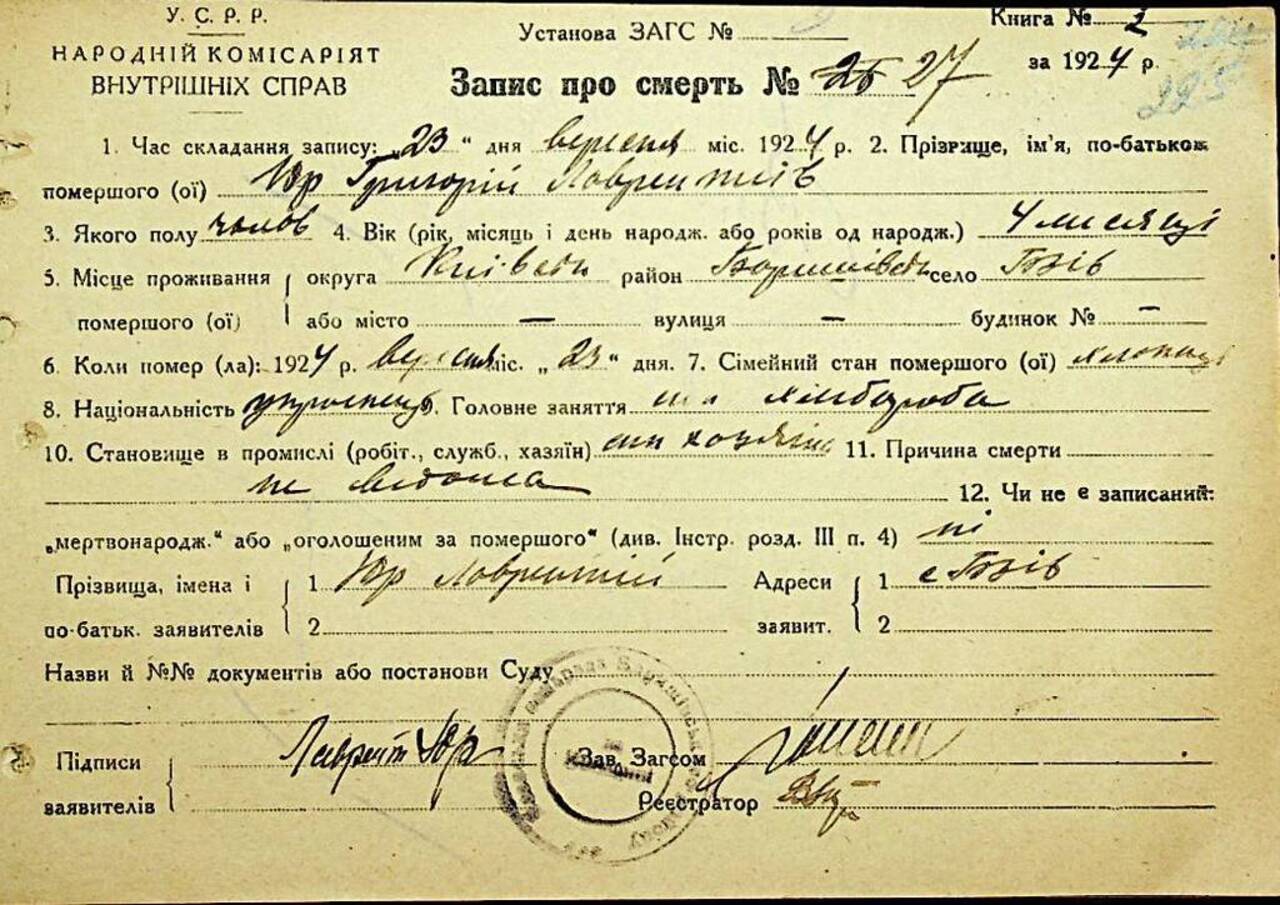 У. С. Р. Р.
НАРОДНІЙ КОМІСАРІЯТ
ВНУТРІШНІХ СПРАВ
Установа ЗАГС №
Книга № 2
за 1924 р.
Запис про смерть № 26 27
225
1. Час складання запису: „23“ дня вересня міс. 1924 р. 2. Прізвище, ім'я, по-батькові
помершого (ої) Юр Григорій Лаврентіїв
3. Якого полу чолов 4. Вік (рік, місяць і день народж. або років од народж.) 4 місяці
5. Місце проживання помершого (ої) округа Київськ район Баришівськ село Бзів
або місто — вулиця — будинок № —
6. Коли помер (ла): 1924 р. вересня міс. „23“ дня. 7. Сімейний стан помершого (ої)
8. Національність українець 9. Головне заняття хлібороба
10. Становище в промислі (робіт., служб., хазяїн) 11. Причина смерти
не відома 12. Чи не є записаний:
„мертвонародж.“ або „оголошеним за помершого“ (див. Інстр. розд. III п. 4) ні
Прізвища, імена і по-батьк. заявителів 1 Юр Лаврентій Адреси заявит. 1 с Бзів
2 2
Назви й №№ документів або постанови Суду
Підписи заявителів Лаврент Юр Зав. Загсом
Реєстратор